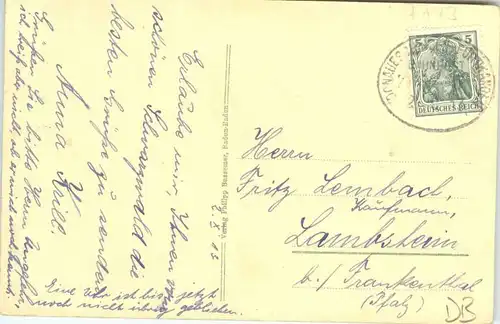 Erlaube mir, Ihnen vom
schönen Schwarzwald die
besten Grüße zu senden
Anna Krill.
Grüßen Sie bitte Herrn
ich hoffe, daß er mich noch kennt.
Eine Uhr ist bis jetzt
noch nicht übrig geblieben.
Verlag Philipp Bussemer, Baden-Baden
5
DEUTSCHES REICH
Herrn
Fritz Lembach,
Kaufmann,
Lambsheim
b./ Frankenthal
(Pfalz)
DB